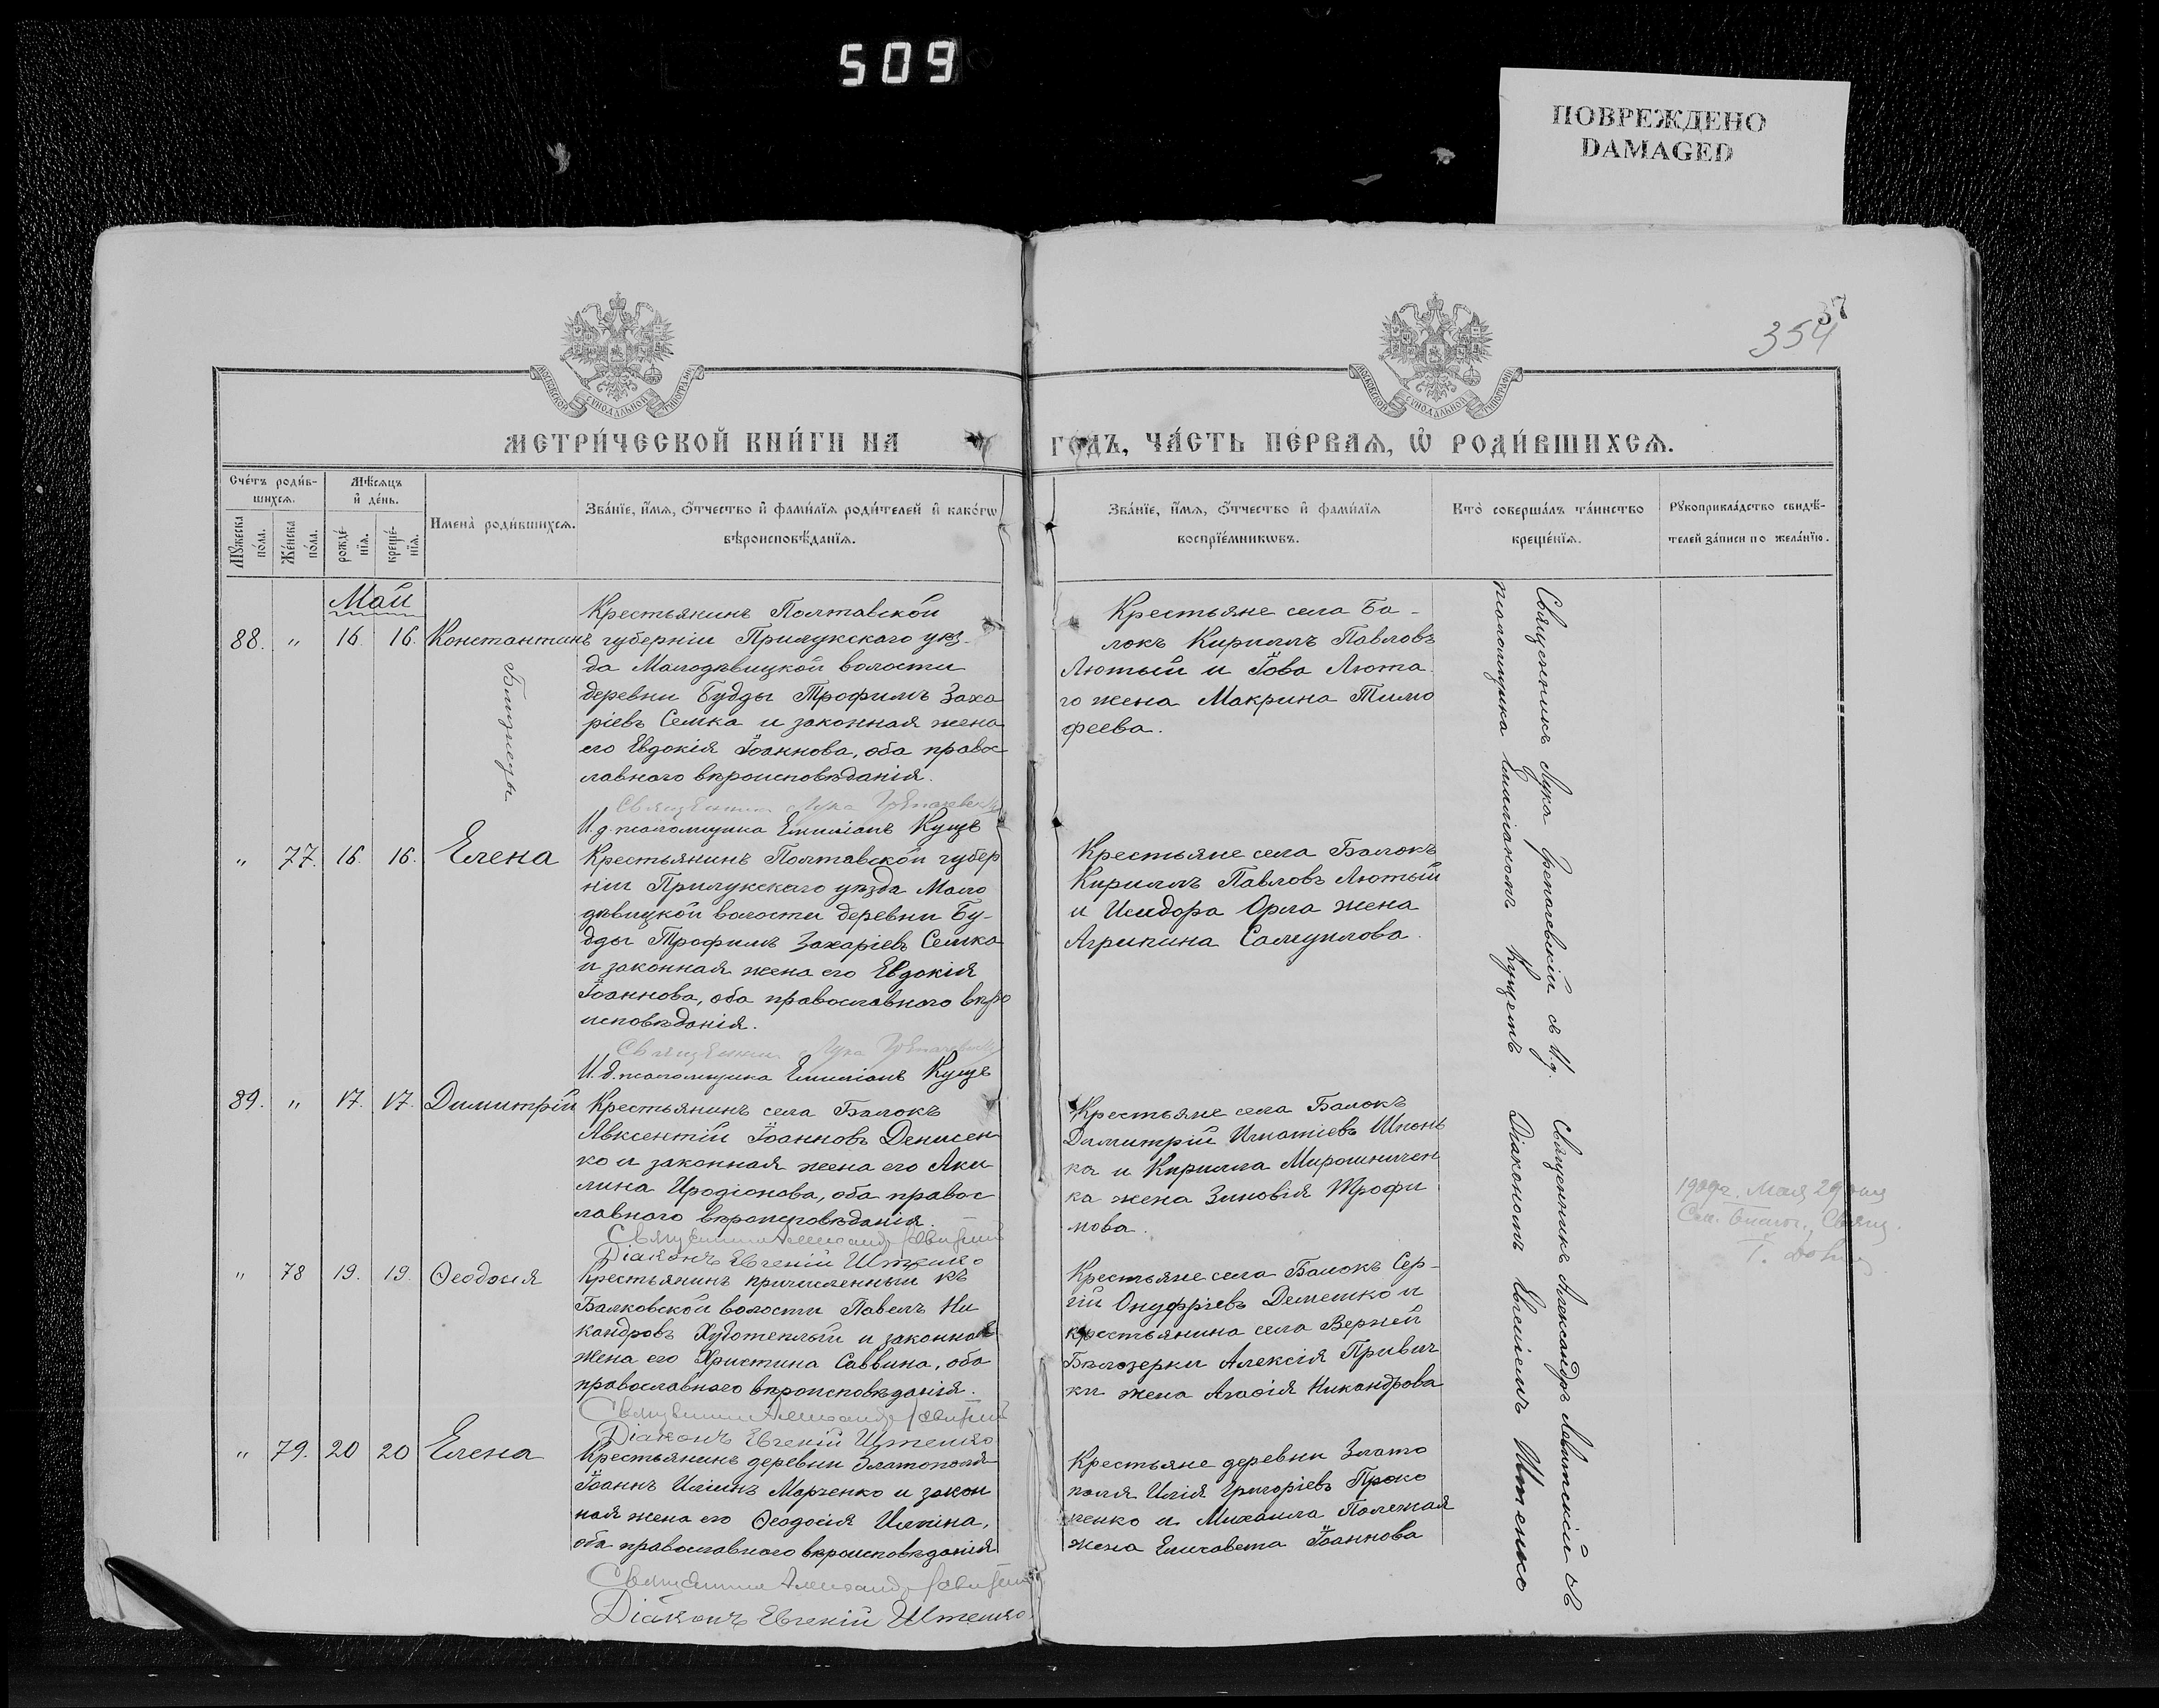 509
ПОВРЕЖДЕНО
DAMAGED
37
354
МОСКОВСКОЙ СѴНОДАЛЬНОЙ ТИПОГРАФІИ
МОСКОВСКОЙ СѴНОДАЛЬНОЙ ТИПОГРАФІИ
МЕТРИ́ЧЕСКОЙ КНИ́ГИ НА ГОДЪ, ЧА́СТЬ ПЕ́РВАѦ, Ѽ РОДИ́ВШИХСѦ.
Сче́тъ роди́в-
шихсѧ.
Мꙋжеска по́ла.
Же́нска по́ла.
Мѣ́сяцъ
и҆ де́нь.
рожде́-
нїѧ.
креще́-
нїѧ.
Имена̀ роди́вшихсѧ.
Зва́нїе, и҆́мѧ, ѻ҆́тчество и҆ фами́лїѧ роди́телей и҆ како́гѡ
вѣроисповѣ́данїѧ.
Зва́нїе, и҆́мѧ, ѻ҆́тчество и҆ фами́лїѧ
воспрїе́мникѡвъ.
Кто̀ соверша́лъ та́инство
креще́нїѧ.
Рꙋкоприкла́дство свидѣ́-
телей за́писи по жела́нїю.
Май
88. " 16. 16. Константинъ
Близнецы
Крестьянинъ Полтавской
губерніи Прилукскаго уѣз-
да Малодѣвицкой волости
деревни Будды Трофимъ Заха
ріевъ Семка и законная жена
его Евдокія Іоаннова, оба правос
лавного вѣроисповѣданія.
Священникъ Лука
И.д. псаломщика Емиліанъ Кущъ
Крестьяне села Ба-
локъ Кириллъ Павловъ
Лютый и Іова Люта
го жена Макрина Тимо
феева.
" 77. 16. 16. Елена
Крестьянинъ Полтавской губер
ніи Прилукскаго уѣзда Мало
дѣвицкой волости деревни Бу-
дды Трофимъ Захаріевъ Семка
и законная жена его Евдокія
Іоаннова, оба православного вѣро
исповѣданія.
Священникъ Лука
И.д. псаломщика Емиліанъ Кущъ
Крестьяне села Балокъ
Кириллъ Павловъ Лютый
и Исидора Орла жена
Агрипина Самуилова.
Священникъ Лука с И.д.
псаломщика Емиліаномъ Кущемъ
89. " 17. 17. Димитрій
Крестьянинъ села Балокъ
Авксентій Іоанновъ Денисен
ко и законная жена его Аки
лина Иродіонова, оба правос
лавного вѣроисповѣданія.
Священникъ Александръ
Діаконъ Евгеній Штенко
Крестьяне села Балокъ
Димитрій Игнатіевъ Шпонь
ка и Кирилла Мирошничен
ка жена Зиновія Трофи
мова.
1909г. Мая 29
" 78 19. 19. Ѳеодосія
Крестьянинъ причисленный къ
Балковской волости Павелъ Ни
кандровъ Худотеплый и законная
жена его Христина Саввина, оба
православного вѣроисповѣданія.
Священникъ Александръ
Діаконъ Евгеній Штенко
Крестьяне села Балокъ Сер-
гій Онуфріевъ Демешко и
крестьянина села Верхней
Бѣлозерки Алексія Привич
ки жена Агафія Никандрова
" 79. 20 20 Елена
Крестьянинъ деревни Златополя
Іоаннъ Иліинъ Марченко и закон
ная жена его Ѳеодосія Иліина,
оба православного вѣроисповѣданія
Священникъ Александръ
Діаконъ Евгеній Штенко
Крестьяне деревни Злато
поля Илія Григоріевъ Проко
пенко и Михаила Полежая
жена Елисавета Іоаннова
Священникъ Александръ съ
Діакономъ Евгеніемъ Штенко